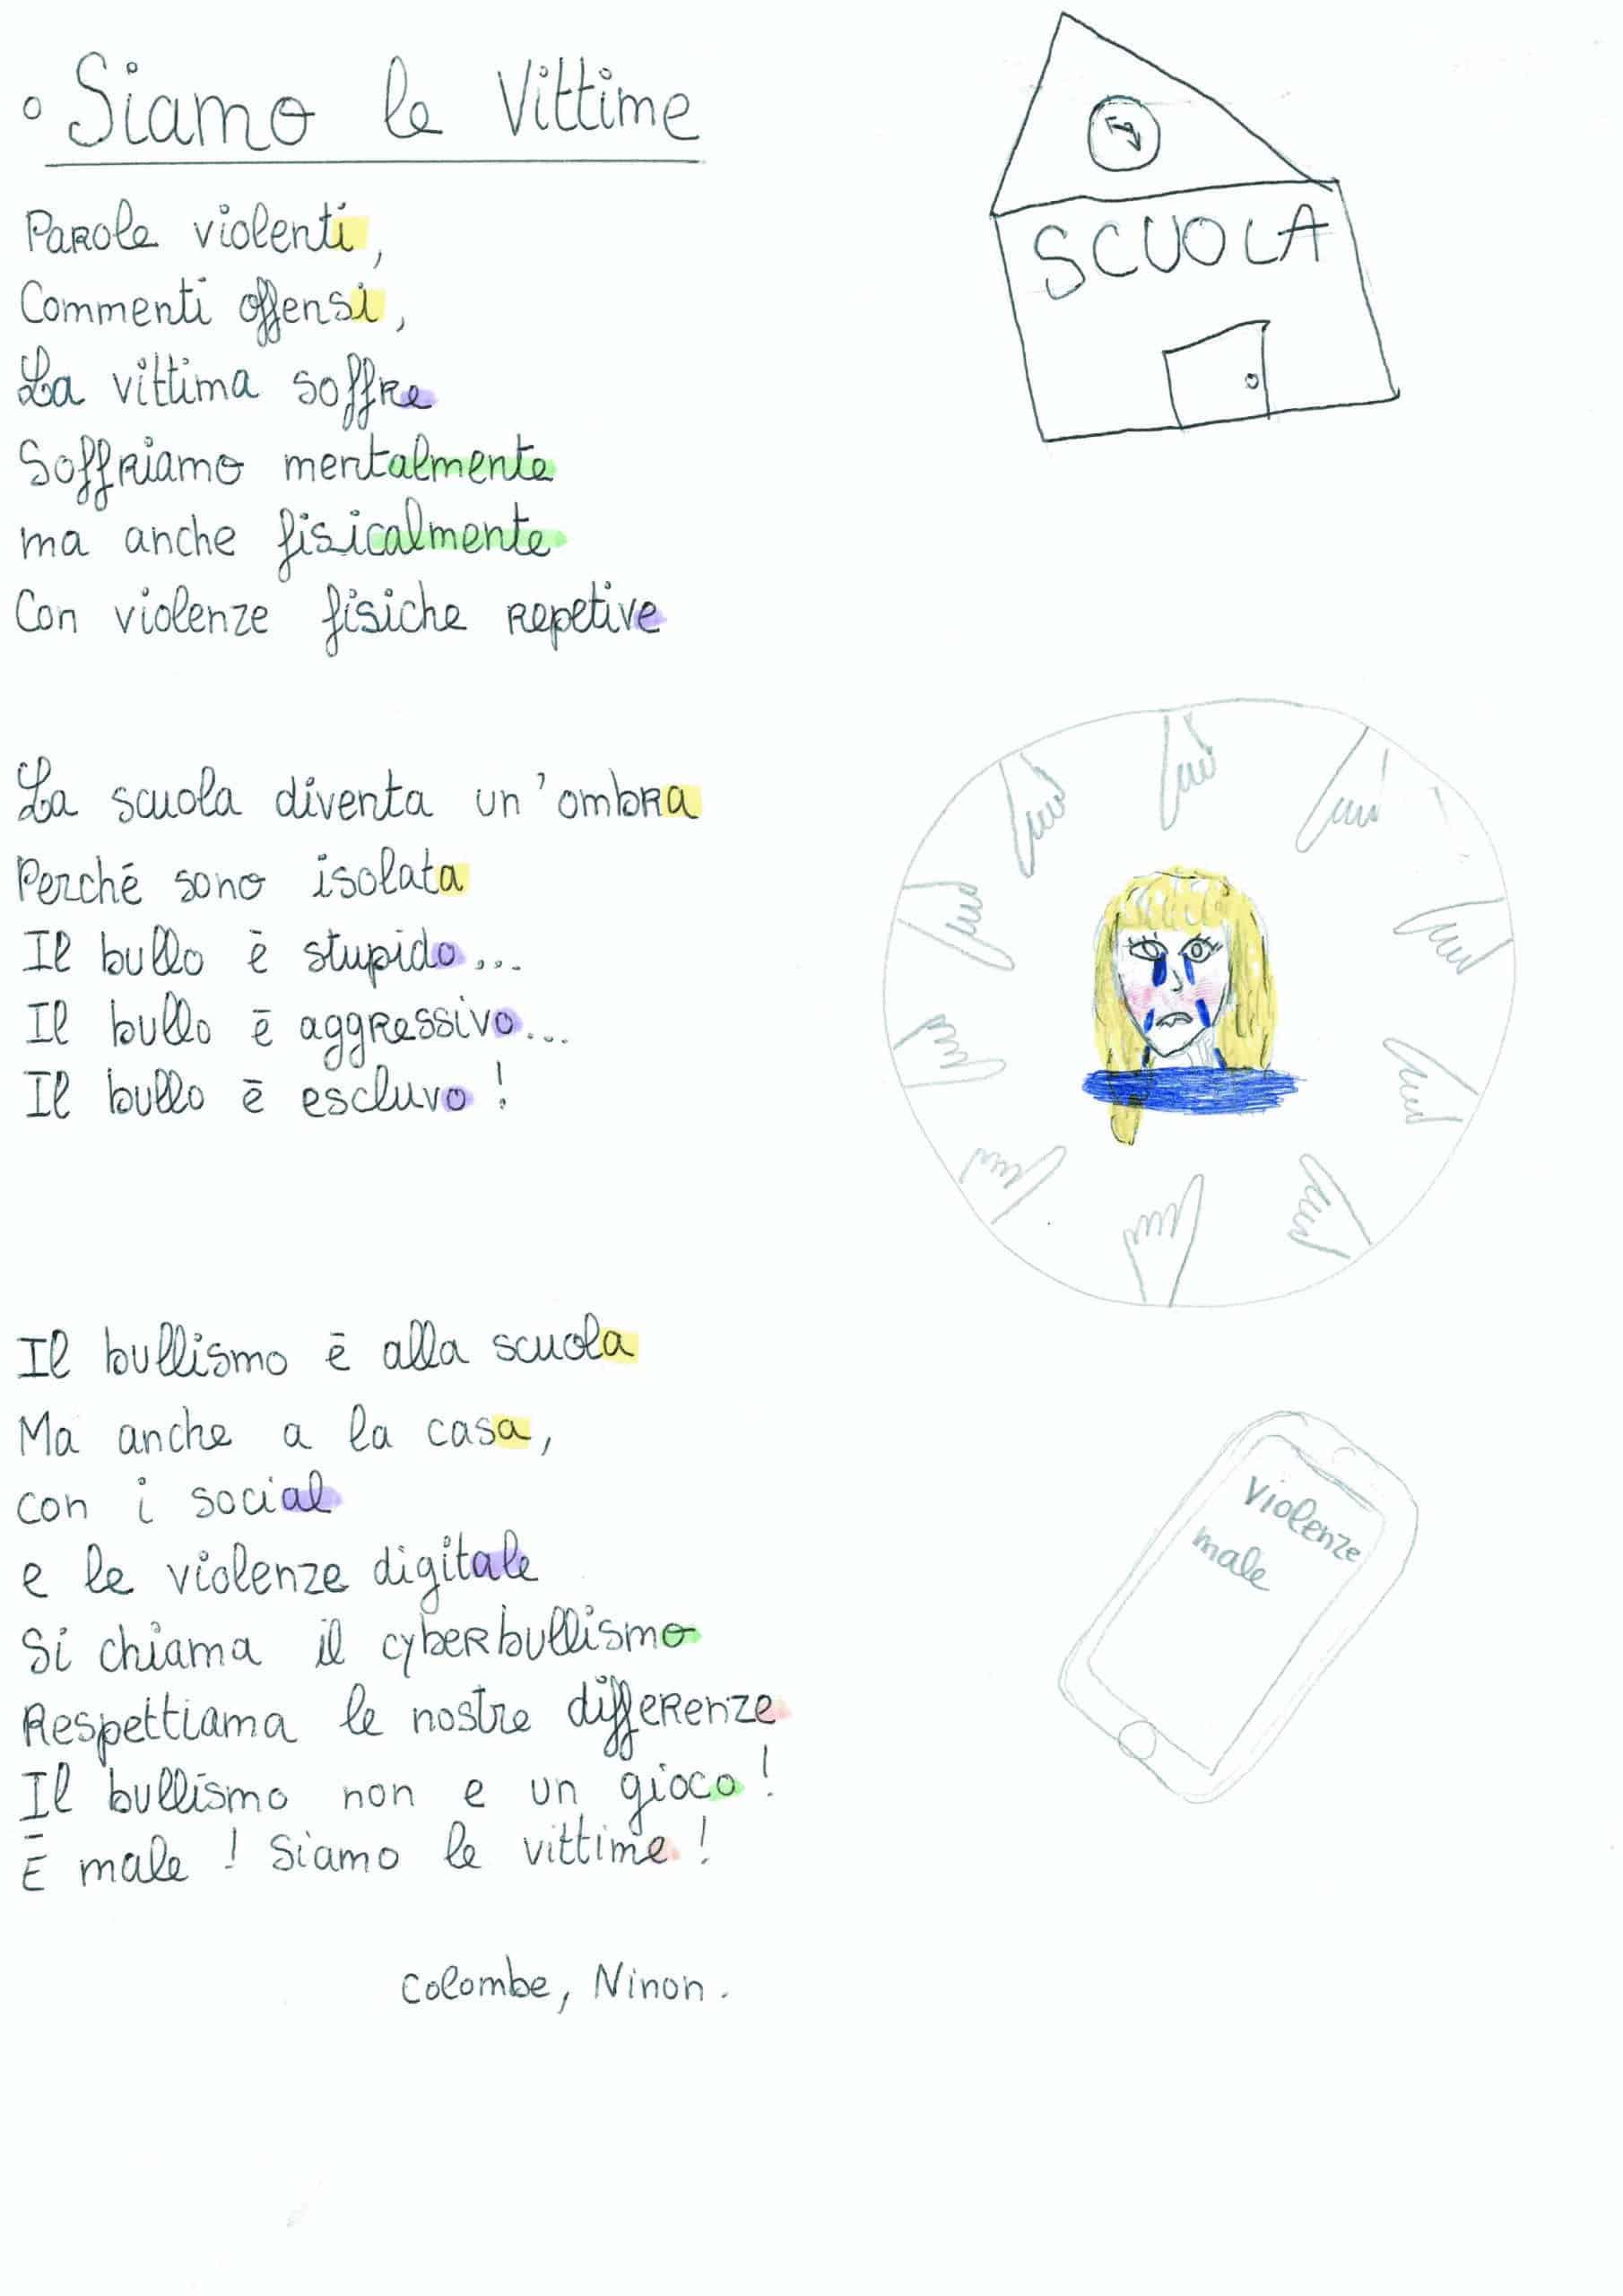 Siamo le Vittime
SCUOLA
Parole violenti,
Commenti offensi,
La vittima soffre
Soffriamo mentalmente
ma anche fisicalmente
Con violenze fisiche repetive
La scuola diventa un'ombra
Perchē sono isolata
Il bullo ē stupido...
Il bullo ē aggressivo...
Il bullo ē escluvo !
Il bullismo ē alla scuola
Ma anche a la casa,
con i social
e le violenze digitale
Si chiama il cyberbullismo
Respettiama le nostre differenze
Il bullismo non e un gioco !
Ē male ! Siamo le vittime !
Violenze
male
Colombe, Ninon.